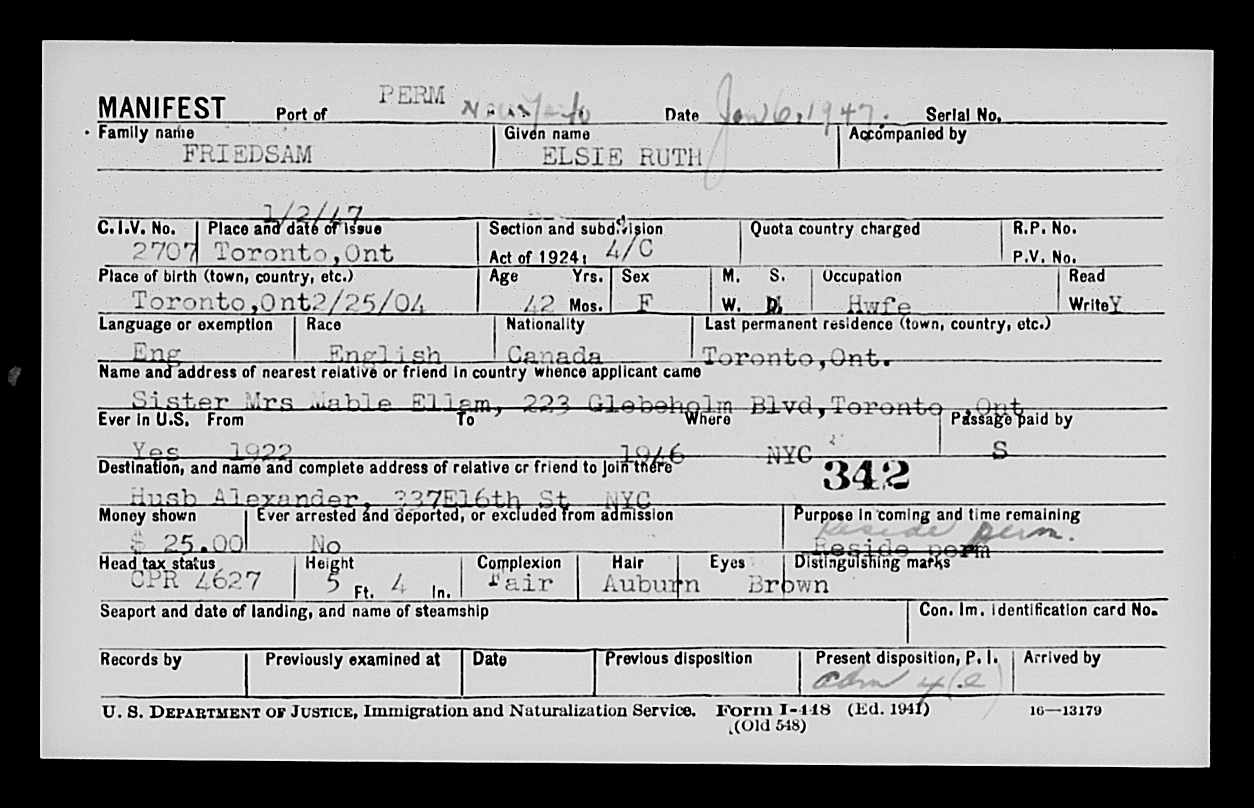 PERM
MANIFEST Port of New York Date Jan 6, 1947. Serial No.
Family name Given name Accompanied by
FRIEDSAM ELSIE RUTH
1/2/47
C.I.V. No. Place and date of issue Section and subdivision Quota country charged R.P. No.
2707 Toronto,Ont Act of 1924: 4/C P.V. No.
Place of birth (town, country, etc.) Age Yrs. Sex M. S. Occupation Read
Toronto,Ont2/25/04 42 Mos. F W. D. Hwfe Write Y
Language or exemption Race Nationality Last permanent residence (town, country, etc.)
Eng English Canada Toronto,Ont.
Name and address of nearest relative or friend in country whence applicant came
Sister Mrs Mable Ellam, 223 Glebeholm Blvd,Toronto ,Ont
Ever in U.S. From To Where Passage paid by
Yes 1922 1946 NYC S
Destination, and name and complete address of relative or friend to join there
342
Husb Alexander, 337E16th St NYC
Money shown Ever arrested and deported, or excluded from admission Purpose in coming and time remaining
reside perm.
$ 25.00 No Reside perm
Head tax status Height Complexion Hair Eyes Distinguishing marks
CPR 4627 5 Ft. 4 In. Fair Auburn Brown
Seaport and date of landing, and name of steamship Con. Im. Identification card No.
Records by Previously examined at Date Previous disposition Present disposition, P. I. Arrived by
adm 4(c)
U. S. DEPARTMENT OF JUSTICE, Immigration and Naturalization Service. Form I-448 (Ed. 1941) 16—13179
(Old 548)